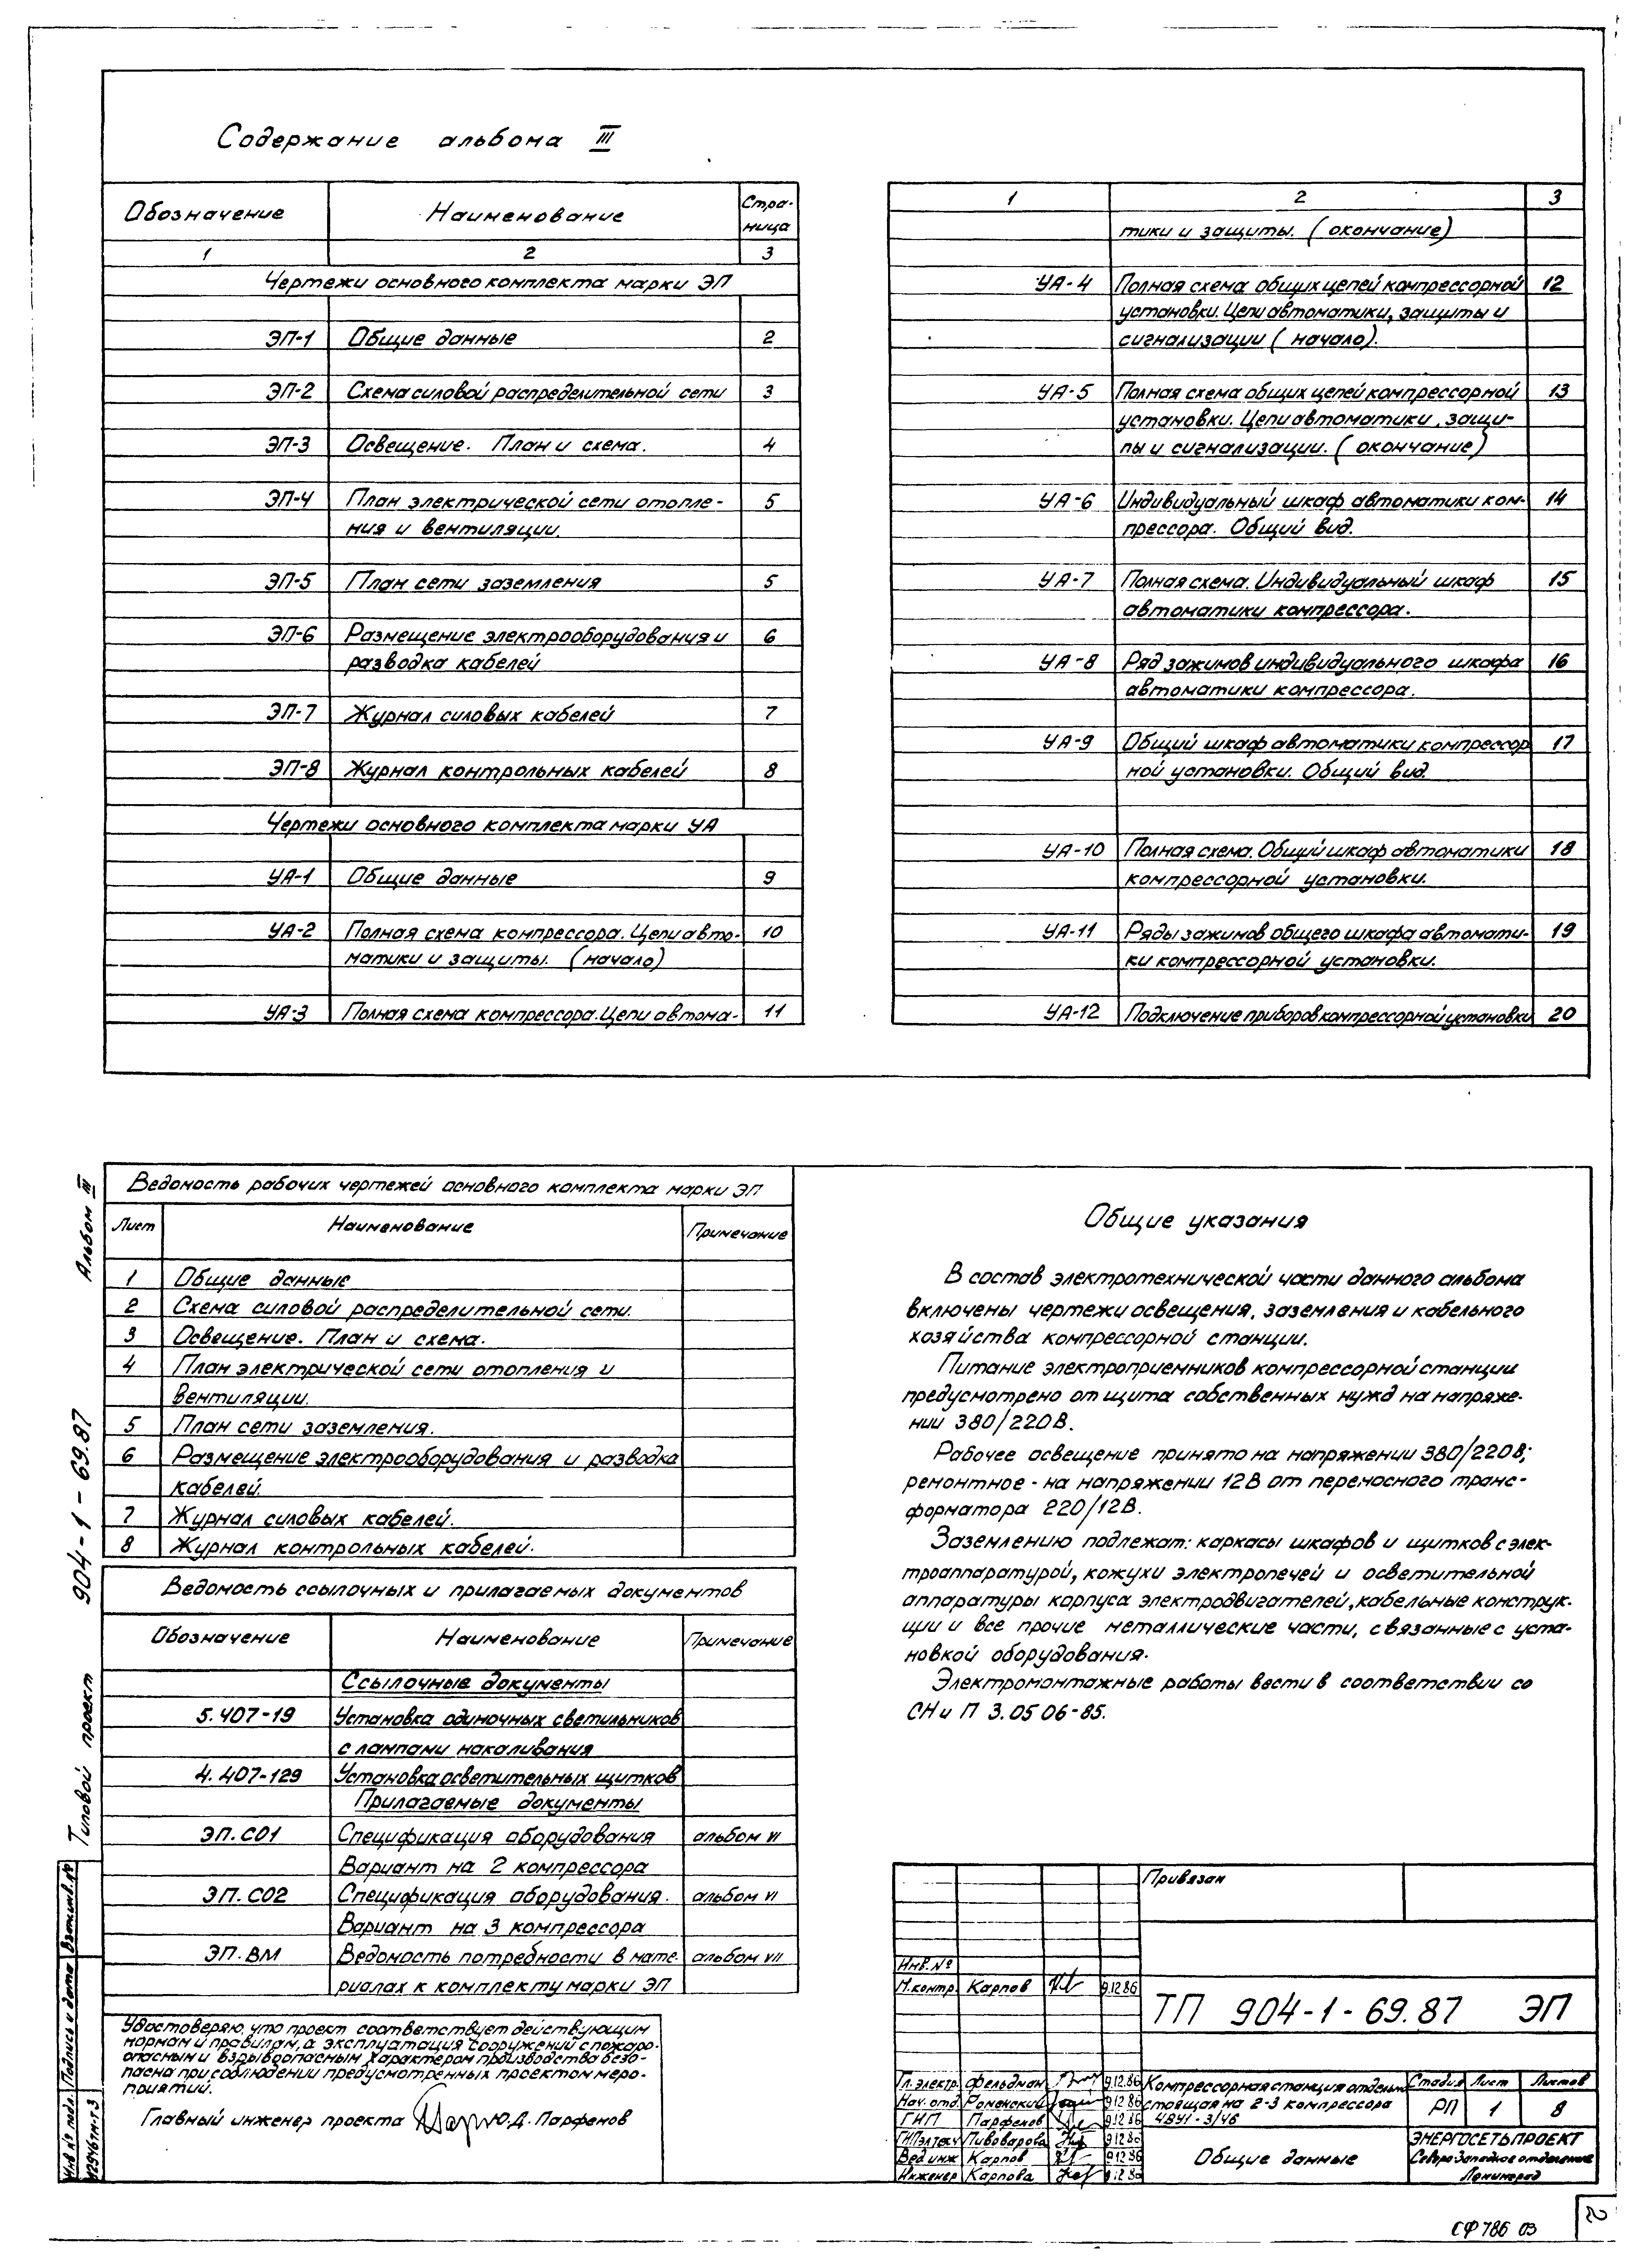 Содержание альбома III
Обозначение Наименование Стра-
ница
1 2 3
Чертежи основного комплекта марки ЭП
ЭП-1 Общие данные 2
ЭП-2 Схема силовой распределительной сети 3
ЭП-3 Освещение. План и схема. 4
ЭП-4 План электрической сети отопле- 5
ния и вентиляции.
ЭП-5 План сети заземления 5
ЭП-6 Размещение электрооборудования и 6
разводка кабелей
ЭП-7 Журнал силовых кабелей 7
ЭП-8 Журнал контрольных кабелей 8
Чертежи основного комплекта марки УА
УА-1 Общие данные 9
УА-2 Полная схема компрессора. Цепи авто- 10
матики и защиты. (начало)
УА-3 Полная схема компрессора. Цепи автома- 11
1 2 3
тики и защиты. (окончание)
УА-4 Полная схема общих цепей компрессорной 12
установки. Цепи автоматики, защиты и
сигнализации (начало).
УА-5 Полная схема общих цепей компрессорной 13
установки. Цепи автоматики, защи-
ты и сигнализации. (окончание)
УА-6 Индивидуальный шкаф автоматики ком- 14
прессора. Общий вид.
УА-7 Полная схема. Индивидуальный шкаф 15
автоматики компрессора.
УА-8 Ряд зажимов индивидуального шкафа 16
автоматики компрессора.
УА-9 Общий шкаф автоматики компрессор 17
ной установки. Общий вид.
УА-10 Полная схема. Общий шкаф автоматики 18
компрессорной установки.
УА-11 Ряды зажимов общего шкафа автомати- 19
ки компрессорной установки.
УА-12 Подключение приборов компрессорной установки 20
Ведомость рабочих чертежей основного комплекта марки ЭП
Лист Наименование Примечание
1 Общие данные
2 Схема силовой распределительной сети.
3 Освещение. План и схема.
4 План электрической сети отопления и
вентиляции.
5 План сети заземления.
6 Размещение электрооборудования и разводка
кабелей.
7 Журнал силовых кабелей.
8 Журнал контрольных кабелей.
Ведомость ссылочных и прилагаемых документов
Обозначение Наименование Примечание
Ссылочные документы
5.407-19 Установка одиночных светильников
с лампами накаливания
4.407-129 Установка осветительных щитков
Прилагаемые документы
ЭП.СО1 Спецификация оборудования альбом VI
Вариант на 2 компрессора
ЭП.СО2 Спецификация оборудования. альбом VI
Вариант на 3 компрессора
ЭП.ВМ Ведомость потребности в мате альбом VII
риалах к комплекту марки ЭП
Удостоверяю, что проект соответствует действующим
нормам и правилам, а эксплуатация сооружений с пожаро-
опасным и взрывоопасным характером производства безо-
пасна при соблюдении предусмотренных проектом меро-
приятий.
Главный инженер проекта Ю.Д. Парфенов
Общие указания
В состав электротехнической части данного альбома
включены чертежи освещения, заземления и кабельного
хозяйства компрессорной станции.
Питание электроприемников компрессорной станции
предусмотрено от щита собственных нужд на напряже-
нии 380/220В.
Рабочее освещение принято на напряжении 380/220В;
ремонтное - на напряжении 12В от переносного транс-
форматора 220/12В.
Заземлению подлежат: каркасы шкафов и щитков с элек-
троаппаратурой, кожухи электропечей и осветительной
аппаратуры корпуса электродвигателей, кабельные конструк-
ции и все прочие металлические части, связанные с уста-
новкой оборудования.
Электромонтажные работы вести в соответствии со
СНиП 3.05 06-85.
Привязан
Инв.№
М.контр. Карпов 9.12.86
ТП 904-1-69.87 ЭП
Гл.электр. Фельдман 9.12.86
Нач.отд Роменский 9.12.86
ГИП Парфенов 9.12.86
Пивоварова 9.12.86
Вед.инж Карпов 9.12.86
Инженер Карпова 9.12.86
Компрессорная станция отдельно
стоящая на 2-3 компрессора
4ВУ1-3/46
Стадия Лист Листов
РП 1 8
Общие данные
ЭНЕРГОСЕТЬПРОЕКТ
Северо-Западное отделение
Ленинград
Типовой проект 904-1-69.87 Альбом III
Инв № подл. Подпись и дата Взам.инв.№
12946тм-т3
СФ 786 03
2